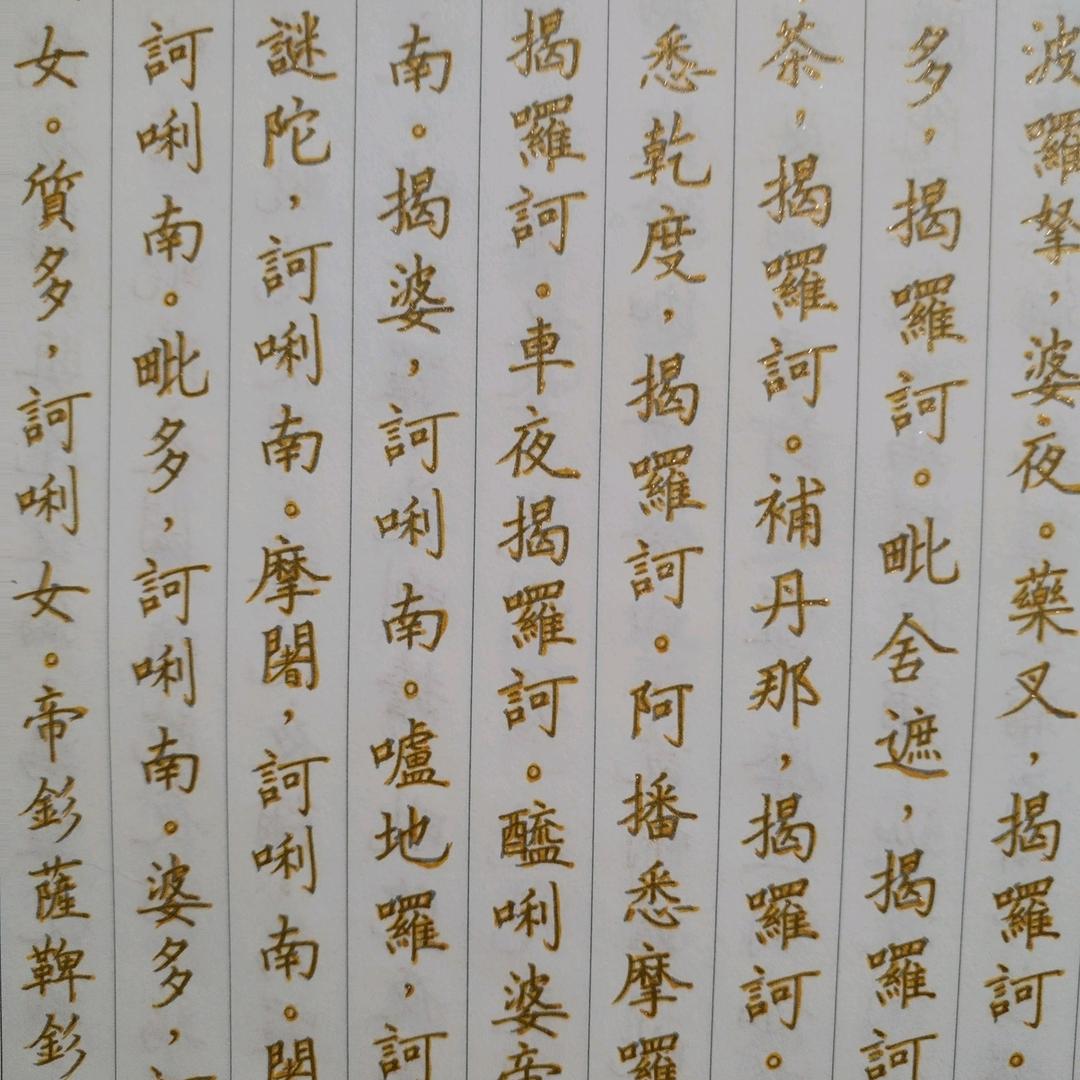 波囉拏，婆夜。藥叉，揭囉訶。
多，揭囉訶。毗舍遮，揭囉訶
茶，揭囉訶。補丹那，揭囉訶。
悉乾度，揭囉訶。阿播悉摩囉
揭囉訶。車夜揭囉訶。醯唎婆帝
南。揭婆，訶唎南。嚧地囉，訶
謎陀，訶唎南。摩闍，訶唎南。闍
訶唎南。毗多，訶唎南。婆多，
女。質多，訶唎女。帝釤薩鞞釤